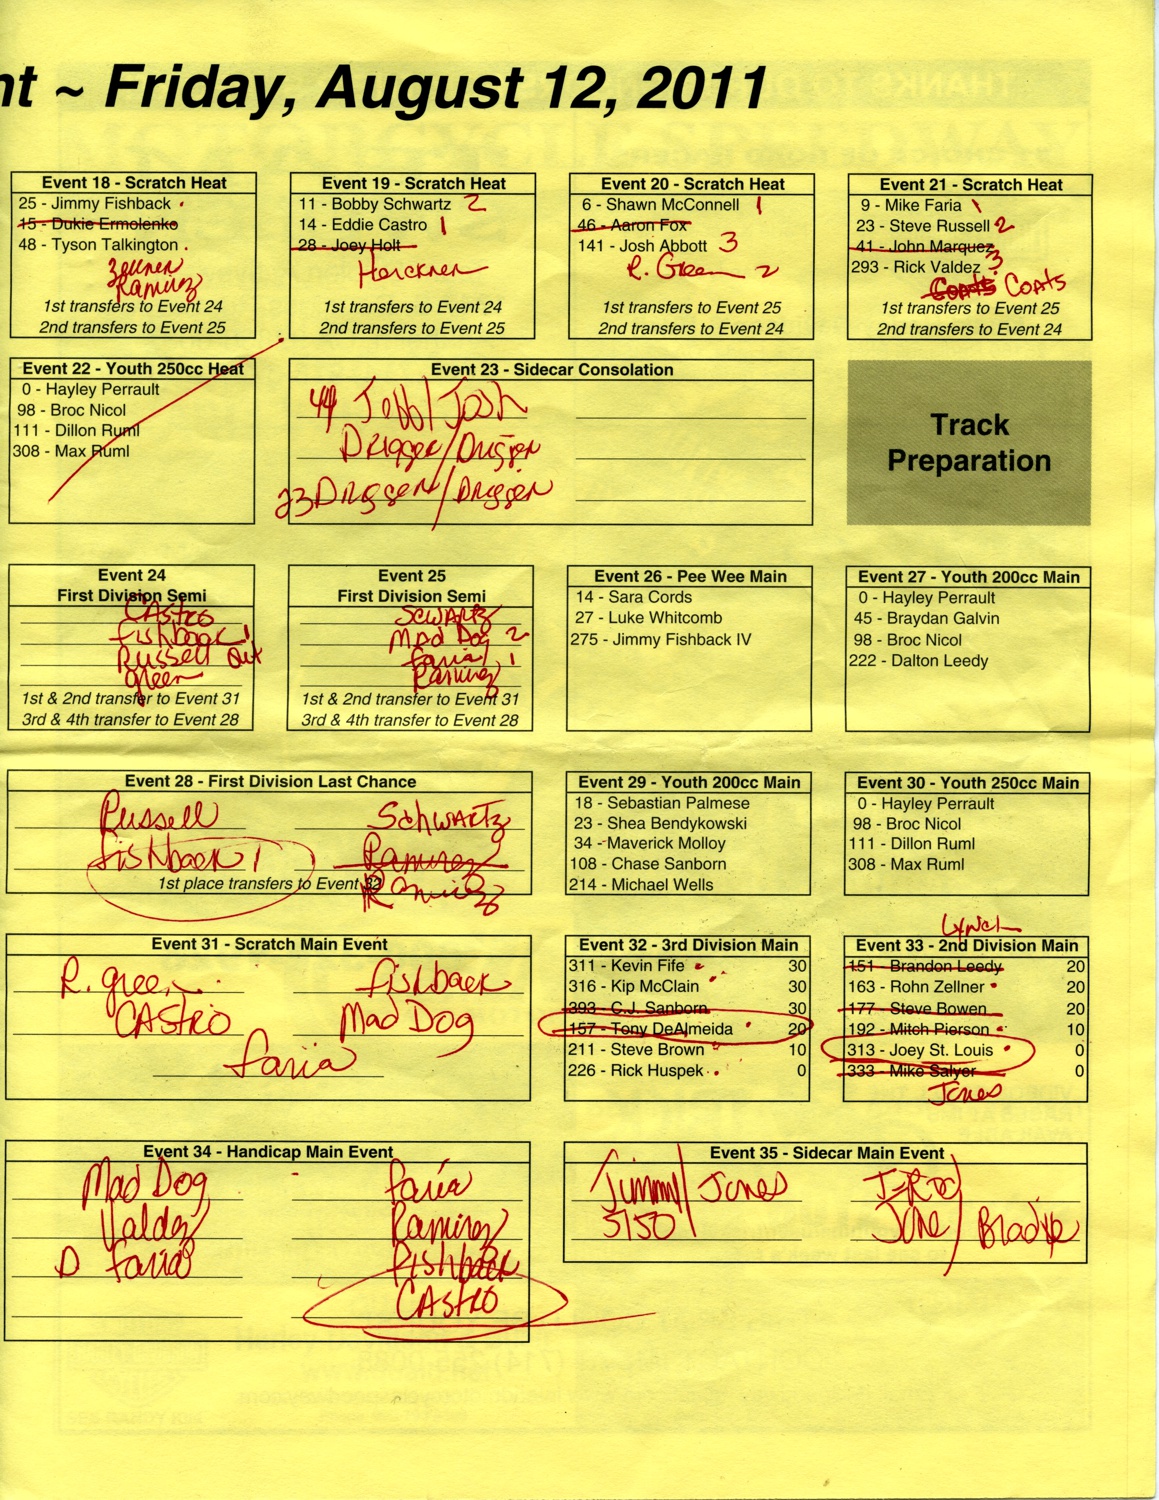 nt ~ Friday, August 12, 2011
Event 18 - Scratch Heat
25 - Jimmy Fishback
15 - Dukie Ermolenko
48 - Tyson Talkington
Zellner
Ramirez
1st transfers to Event 24
2nd transfers to Event 25
Event 19 - Scratch Heat
11 - Bobby Schwartz 2
14 - Eddie Castro 1
28 - Joey Holt
1st transfers to Event 24
2nd transfers to Event 25
Event 20 - Scratch Heat
6 - Shawn McConnell 1
46 - Aaron Fox
141 - Josh Abbott 3
R. Green 2
1st transfers to Event 25
2nd transfers to Event 24
Event 21 - Scratch Heat
9 - Mike Faria 1
23 - Steve Russell 2
41 - John Marquez
293 - Rick Valdez 3
Coats Coats
1st transfers to Event 25
2nd transfers to Event 24
Event 22 - Youth 250cc Heat
0 - Hayley Perrault
98 - Broc Nicol
111 - Dillon Ruml
308 - Max Ruml
Event 23 - Sidecar Consolation
44 Jeff/Josh
Drigger/Driggen
23 Driggen/Driggen
Track
Preparation
Event 24
First Division Semi
Castro
Fishback 1
Russell Out
Green
1st & 2nd transfer to Event 31
3rd & 4th transfer to Event 28
Event 25
First Division Semi
Scwartz
Mad Dog 2
Faria 1
Ramirez
1st & 2nd transfer to Event 31
3rd & 4th transfer to Event 28
Event 26 - Pee Wee Main
14 - Sara Cords
27 - Luke Whitcomb
275 - Jimmy Fishback IV
Event 27 - Youth 200cc Main
0 - Hayley Perrault
45 - Braydan Galvin
98 - Broc Nicol
222 - Dalton Leedy
Event 28 - First Division Last Chance
Russell Schwartz
Fishback 1 Ramirez
1st place transfers to Event
Ramirez
Event 29 - Youth 200cc Main
18 - Sebastian Palmese
23 - Shea Bendykowski
34 - Maverick Molloy
108 - Chase Sanborn
214 - Michael Wells
Event 30 - Youth 250cc Main
0 - Hayley Perrault
98 - Broc Nicol
111 - Dillon Ruml
308 - Max Ruml
Event 31 - Scratch Main Event
R. Green Fishback
Castro Mad Dog
Faria
Event 32 - 3rd Division Main
311 - Kevin Fife 30
316 - Kip McClain 30
393 - C.J. Sanborn 30
157 - Tony DeAlmeida 20
211 - Steve Brown 10
226 - Rick Huspek 0
Lynch
Event 33 - 2nd Division Main
151 - Brandon Leedy 20
163 - Rohn Zellner 20
177 - Steve Bowen 20
192 - Mitch Pierson 10
313 - Joey St. Louis 0
333 - Mike Salyer 0
Jones
Event 34 - Handicap Main Event
Mad Dog Faria
Valdez Ramirez
D Faria Fishback
Castro
Event 35 - Sidecar Main Event
Jimmy/Jones
5150
June/Bradye